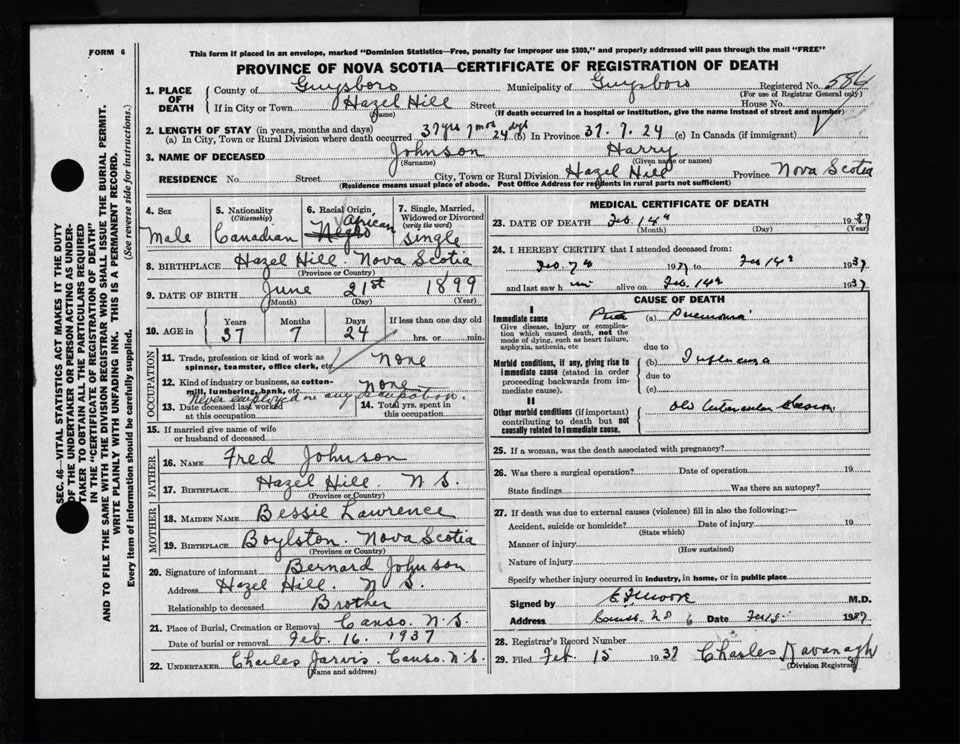 FORM 6
This form if placed in an envelope, marked "Dominion Statistics—Free, penalty for improper use $300," and properly addressed will pass through the mail "FREE"
PROVINCE OF NOVA SCOTIA—CERTIFICATE OF REGISTRATION OF DEATH
1. PLACE OF DEATH
County of Guysboro Municipality of Guysboro Registered No. 584
(For use of Registrar General only)
If in City or Town Hazel Hill Street House No.
(Name) (If death occurred in a hospital or institution, give the name instead of street and number)
2. LENGTH OF STAY (in years, months and days)
(a) In City, Town or Rural Division where death occurred 37 yrs 7 mos 24 dys (b) In Province 37. 7. 24 (c) In Canada (if immigrant)
3. NAME OF DECEASED Johnson Harry
(Surname) (Given name or names)
RESIDENCE No. Street City, Town or Rural Division Hazel Hill Province Nova Scotia
(Residence means usual place of abode. Post Office Address for residents in rural parts not sufficient)
SEC. 46—VITAL STATISTICS ACT MAKES IT THE DUTY
OF THE UNDERTAKER OR PERSON ACTING AS UNDERTAKER
TO OBTAIN ALL THE PARTICULARS REQUIRED
IN THE "CERTIFICATE OF REGISTRATION OF DEATH"
AND TO FILE THE SAME WITH THE DIVISION REGISTRAR WHO SHALL ISSUE THE BURIAL PERMIT.
WRITE PLAINLY WITH UNFADING INK. THIS IS A PERMANENT RECORD.
Every item of information should be carefully supplied. (See reverse side for instructions.)
4. Sex
Male
5. Nationality
(Citizenship)
Canadian
6. Racial Origin
African
Negro
7. Single, Married, Widowed or Divorced
(write the word)
single
8. BIRTHPLACE Hazel Hill. Nova Scotia
(Province or Country)
9. DATE OF BIRTH June 21st 1899
(Month) (Day) (Year)
10. AGE in Years Months Days If less than one day old
37 7 24 hrs. or min.
OCCUPATION
11. Trade, profession or kind of work as spinner, teamster, office clerk, etc. none
12. Kind of industry or business, as cotton-mill, lumbering, bank, etc. none
Never employed in any occupation.
13. Date deceased last worked at this occupation
14. Total yrs. spent in this occupation
15. If married give name of wife or husband of deceased
FATHER
16. NAME Fred Johnson
17. BIRTHPLACE Hazel Hill. N S.
(Province or Country)
MOTHER
18. MAIDEN NAME Bessie Lawrence
19. BIRTHPLACE Boylston. Nova Scotia
(Province or Country)
20. Signature of informant Bernard Johnson
Address Hazel Hill N S.
Relationship to deceased Brother
21. Place of Burial, Cremation or Removal Canso. N.S.
Date of burial or removal Feb. 16. 1937
22. UNDERTAKER Charles Jarvis. Canso. N.S.
(Name and address)
MEDICAL CERTIFICATE OF DEATH
23. DATE OF DEATH Feb. 14th 1937
(Month) (Day) (Year)
24. I HEREBY CERTIFY that I attended deceased from:
Feb. 7th 1937 to Feb 14th 1937
and last saw him alive on Feb. 14th 1937
CAUSE OF DEATH
I
Immediate cause (a) Pneumonia
Give disease, injury or complication which caused death, not the mode of dying, such as heart failure, asphyxia, asthenia, etc
due to
Morbid conditions, if any, giving rise to immediate cause (stated in order proceeding backwards from immediate cause).
(b) Influenza
due to
(c)
II
Other morbid conditions (if important) contributing to death but not causally related to immediate cause.
Old
25. If a woman, was the death associated with pregnancy?
26. Was there a surgical operation? Date of operation 19
State findings Was there an autopsy?
27. If death was due to external causes (violence) fill in also the following:—
Accident, suicide or homicide? Date of injury 19
(State which)
Manner of injury
(How sustained)
Nature of injury
Specify whether injury occurred in industry, in home, or in public place
Signed by M.D.
Address Canso N S Date Feb 15 1937
28. Registrar's Record Number 6
29. Filed Feb. 15 1937 Charles Kavanagh
(Division Registrar)